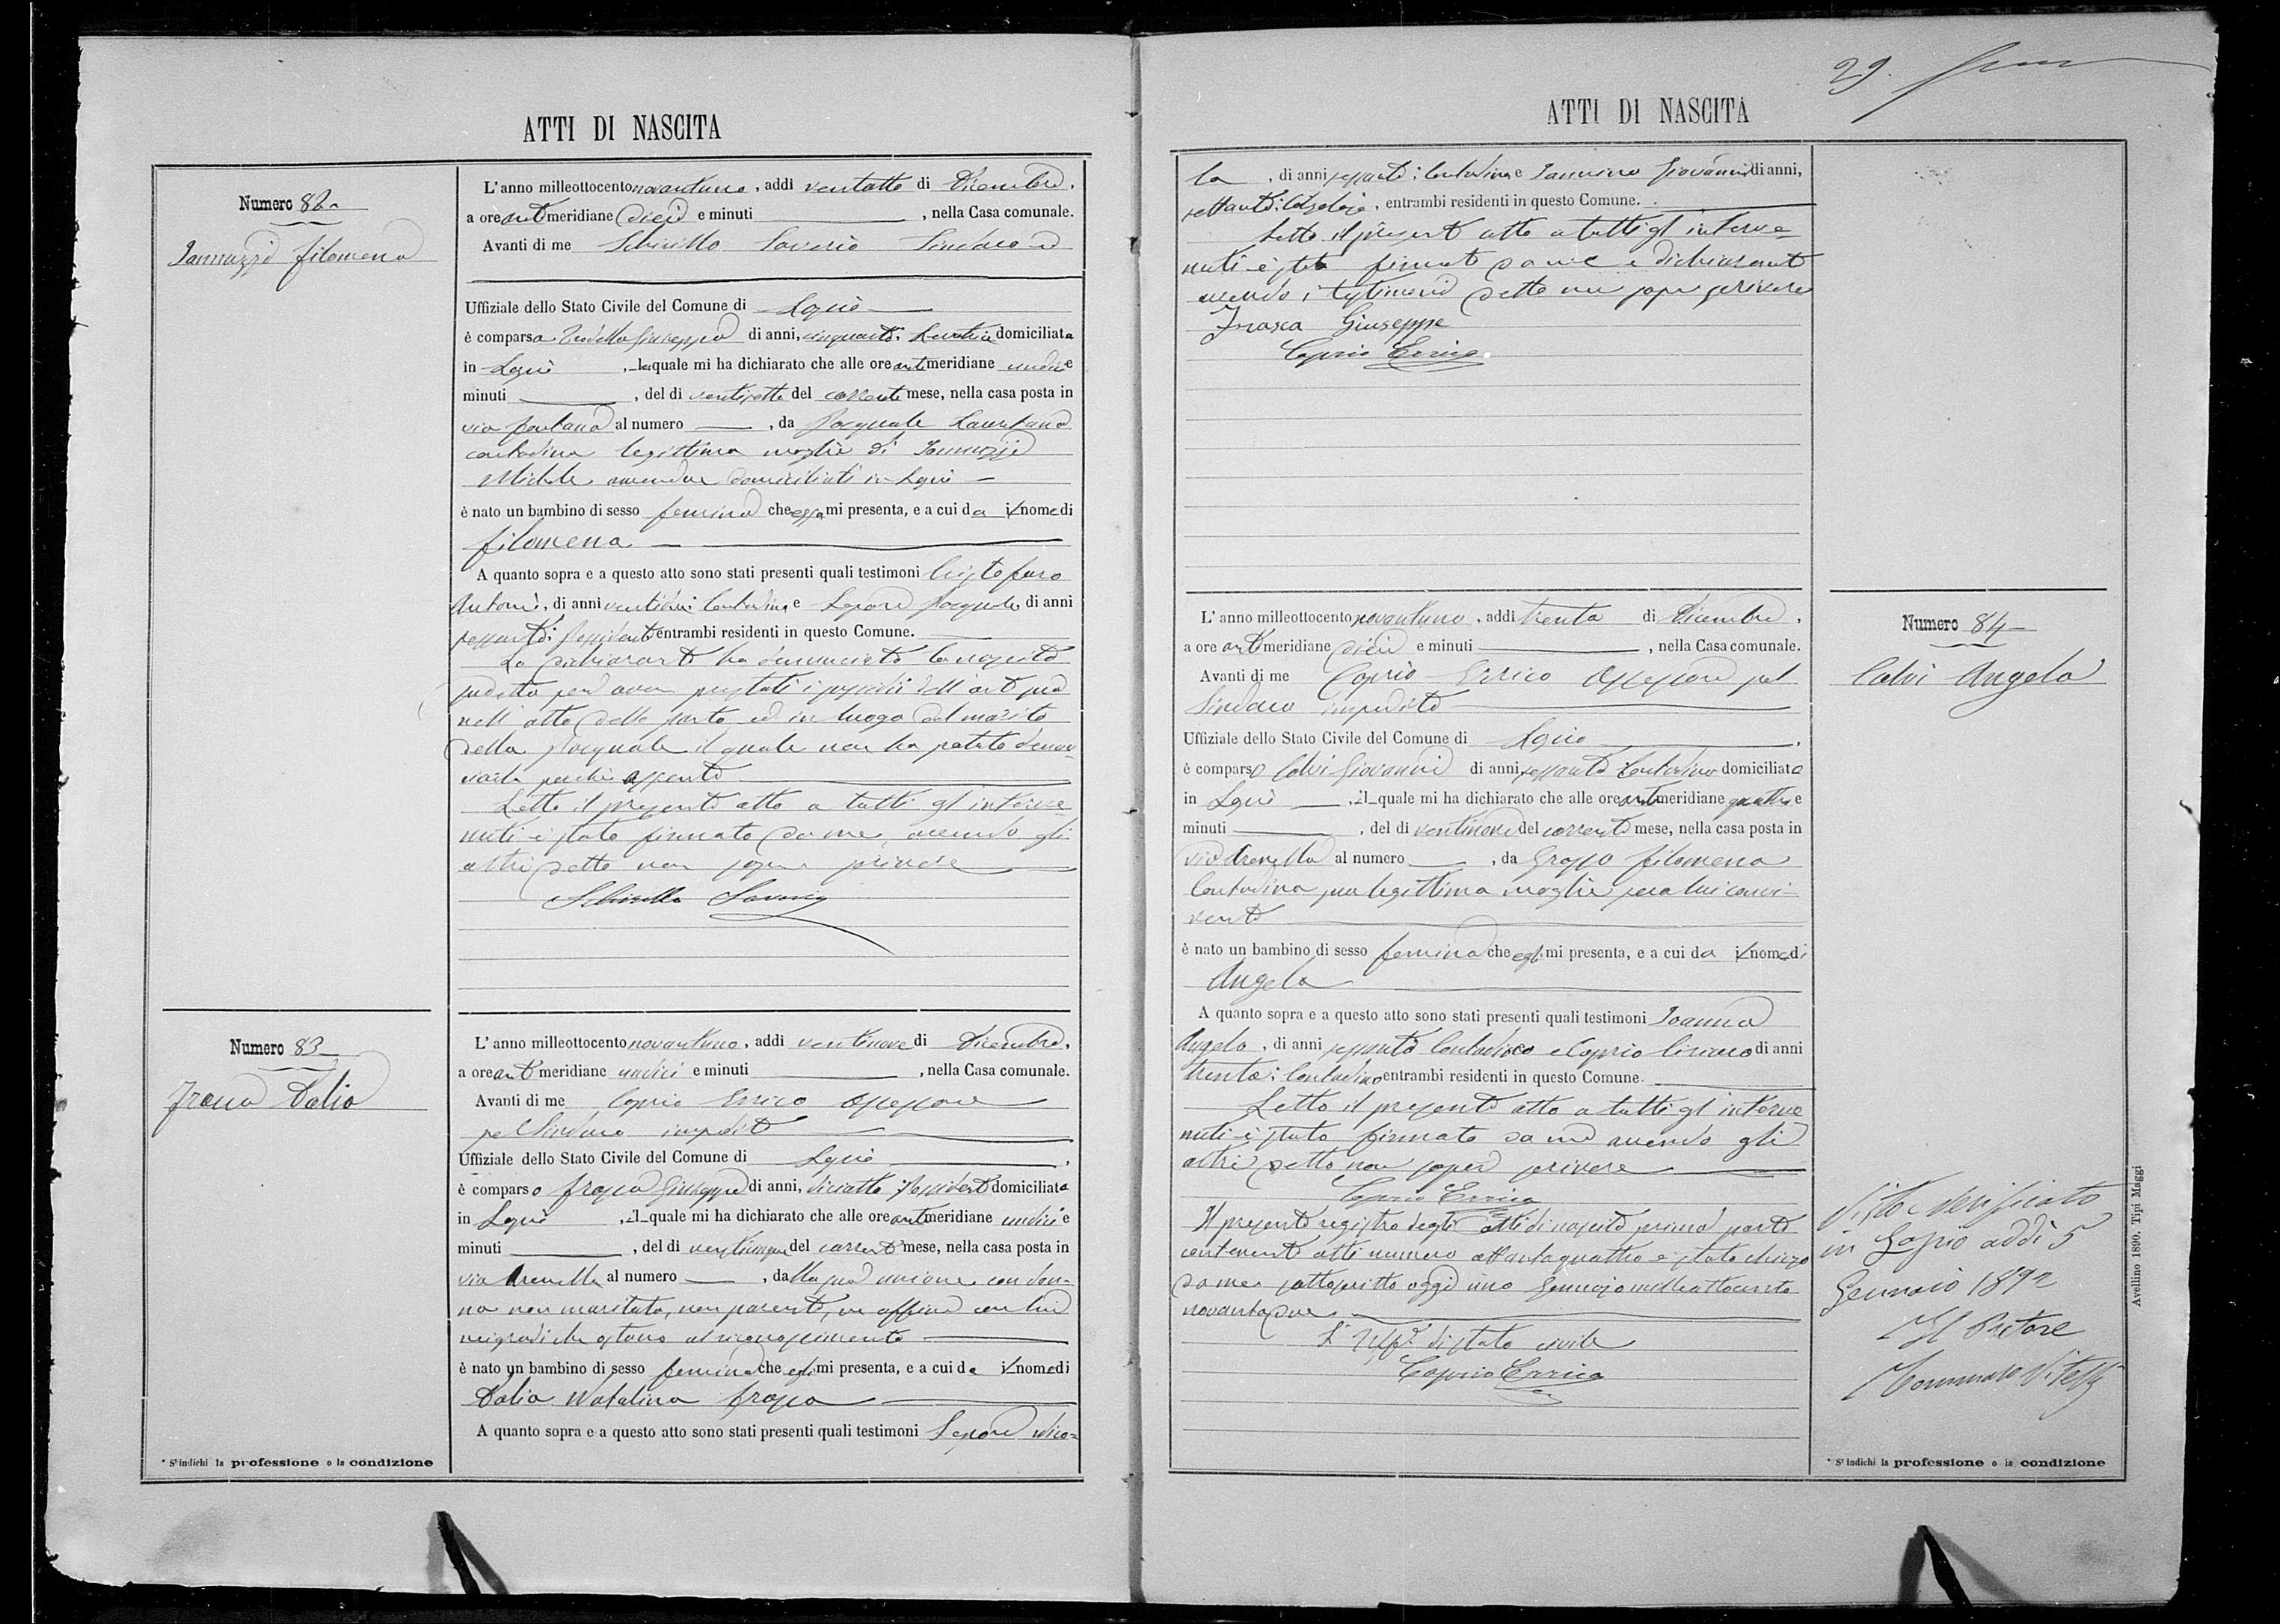 ATTI DI NASCITA
Numero 82
Iannuzzi Filomena
L'anno milleottocento novantuno, addì ventotto di Dicembre,
a ore antimeridiane dieci e minuti, nella Casa comunale.
Avanti di me Schirillo Saverio Sindaco ed
Uffiziale dello Stato Civile del Comune di Lapio
è comparsa Giuseppa di anni, cinquanta; Levatrice domiciliata
in Lapio, la quale mi ha dichiarato che alle ore antimeridiane undici e
minuti, del dì ventisette del corrente mese, nella casa posta in
via Fontana al numero, da Pasquale Lauretana
contadina legittima moglie di Iannuzzi
Michele amendue domiciliati in Lapio
è nato un bambino di sesso feminino che essa mi presenta, e a cui da il nome di
Filomena
A quanto sopra e a questo atto sono stati presenti quali testimoni Cristofaro
Antonio, di anni Contadino e Lepore Pasquale di anni
sessanta; Possidente entrambi residenti in questo Comune.
La dichiarante ha denunciato la nascita
sudetta per aver prestati i sussidii dell'arte sua
nell'atto dello parto ed in luogo del marito
della Pasquale il quale non ha potuto denun-
ciarla perchè assente
Letto il presente atto a tutti gl'interve-
nuti è stato firmato da me, avendo gli
altri detto non sapere scrivere
Schirillo Saverio
Numero 83
Frasca Dalia
L'anno milleottocento novantuno, addì ventinove di Dicembre,
a ore antimeridiane undici e minuti, nella Casa comunale.
Avanti di me Caprio Errico Assessore
pel Sindaco impedito
Uffiziale dello Stato Civile del Comune di Lapio,
è comparso Frasca Giuseppe di anni, diciotto; Possidente domiciliato
in Lapio, il quale mi ha dichiarato che alle ore antimeridiane undici e
minuti, del dì venticinque del corrente mese, nella casa posta in
via Arenella al numero, dalla sua unione con don-
na non maritata, non parente, ne affine con lui
nei gradi che ostano al riconoscimento
è nato un bambino di sesso feminino che egli mi presenta, e a cui da il nome di
Dalia Natalina Frasca
A quanto sopra e a questo atto sono stati presenti quali testimoni Lepore Nico-
* S'indichi la professione o la condizione
29.
ATTI DI NASCITA
la, di anni sessanta; Contadino e Iannino Giovanni di anni,
settanta; Calzolajo, entrambi residenti in questo Comune.
Letto il presente atto a tutti gl'interve-
nuti è stato firmato da me e dichiarante
avendo i testimoni detto non saper scrivere
Frasca Giuseppe
Caprio Errico
L'anno milleottocento novantuno, addì trenta di Dicembre,
a ore antimeridiane dieci e minuti, nella Casa comunale.
Avanti di me Caprio Errico Assessore pel
Sindaco impedito
Uffiziale dello Stato Civile del Comune di Lapio,
è comparso Calvi Giovanni di anni sessanta Contadino domiciliato
in Lapio, il quale mi ha dichiarato che alle ore antimeridiane quattro e
minuti, del dì ventinove del corrente mese, nella casa posta in
via Arenella al numero, da Grasso Filomena
Contadina sua legittima moglie seco lui convi-
vente
è nato un bambino di sesso feminino che egli mi presenta, e a cui da il nome di
Angela
A quanto sopra e a questo atto sono stati presenti quali testimoni Ioanna
Angelo, di anni sessanta Contadino e Caprio Ciriaco di anni
trenta; Contadino entrambi residenti in questo Comune.
Letto il presente atto a tutti gl'interve
nuti è stato firmato da me avendo gli
altri detto non saper scrivere
Caprio Errico
Il presente registro degli atti di nascita prima parte
contenente atti numero ottantaquattro è stato chiuso
da me sottoscritto oggi uno Gennajo milleottocento
novantadue
L'Uff. di stato civile
Caprio Errico
Numero 84
Calvi Angela
Visto e verificato
in Lapio addì 5
Gennaio 1892
Il Pretore
* S'indichi la professione o la condizione
Avellino 1890. Tipi Maggi